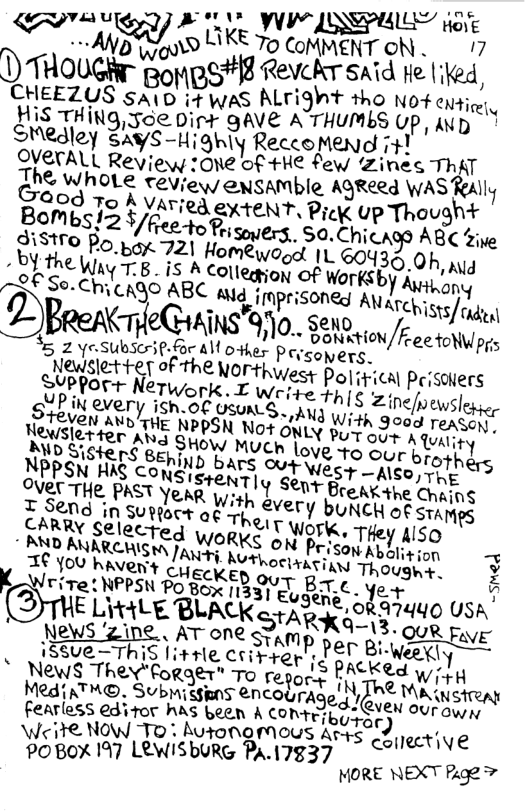 THE HOLE
17
...AND WOULD LIKE TO COMMENT ON.
① THOUGHT BOMBS #18 REVCAT SAID He liked,
CHEEZUS SAID it WAS Alright tho NOT entirely
HiS THING, JOE DIRT GAVE A THUMBS UP, AND
Smedley SAYS-Highly RECCOMend it!
OVERALL Review: ONE of tHE few 'ZINES THAT
THE WHOLE REVIEW ENSAMBLE AgREED WAS REAlly
GOOD TO A VARIED EXTENT. PICK UP Thought
BOMBS! 2$/free to PRISONERS.. SO. CHICAGO ABC 'zine
distro P.O. box 721 Homewood IL 60430. Oh, AND
by the Way T.B. is A collection of works by Anthony
of So. Chicago ABC AND imprisoned ANArchists/radical
② BREAK THE CHAINS #9,10.. SEND
DONATION/Free to NW pris
$5 2 yr. subscrip. for All other Prisoners.
Newsletter of the Northwest Political Prisoners
SUPPORT NETWORK. I WRITE tHiS 'ziNE/Newsletter
UP iN every ish. of USUALS., AND with good reason.
STEVEN AND THE NPPSN NOT ONLY PUT OUT A QUALITY
Newsletter AND SHOW MUCH love to OUR brothers
AND SiSTERS BEHIND BARS OUT WEST-Also, THE
NPPSN HAS CONSISTENTLY SENT BREAK the CHAINS
OVER THE PAST YEAR With every BUNCH OF STAMPS
I Send in support of Their WORK. THEY AlSO
CARRY Selected WORKS ON PrisoN Abolition
AND ANARCHISM/ANti Authoritarian Thought.
If you haven't CHECKED OUT B.T.C. yet
Write: NPPSN PO BOX 11331 Eugene, OR 97440 USA
-Smed
★③ THE Little BLACK STAR★9-13. OUR FAVE
NEWS 'zine. AT one STAMP per Bi-Weekly
issue-This little critter is PACKED WiTH
News They "forget" To report IN The MAINSTREAM
MediA™©. Submissions encouraged! (even our own
fearless editor has been a contributor)
Write NOW TO: AutoNomous Arts Collective
PO BOX 197 LEWISBURG PA. 17837
MORE NEXT PAge →